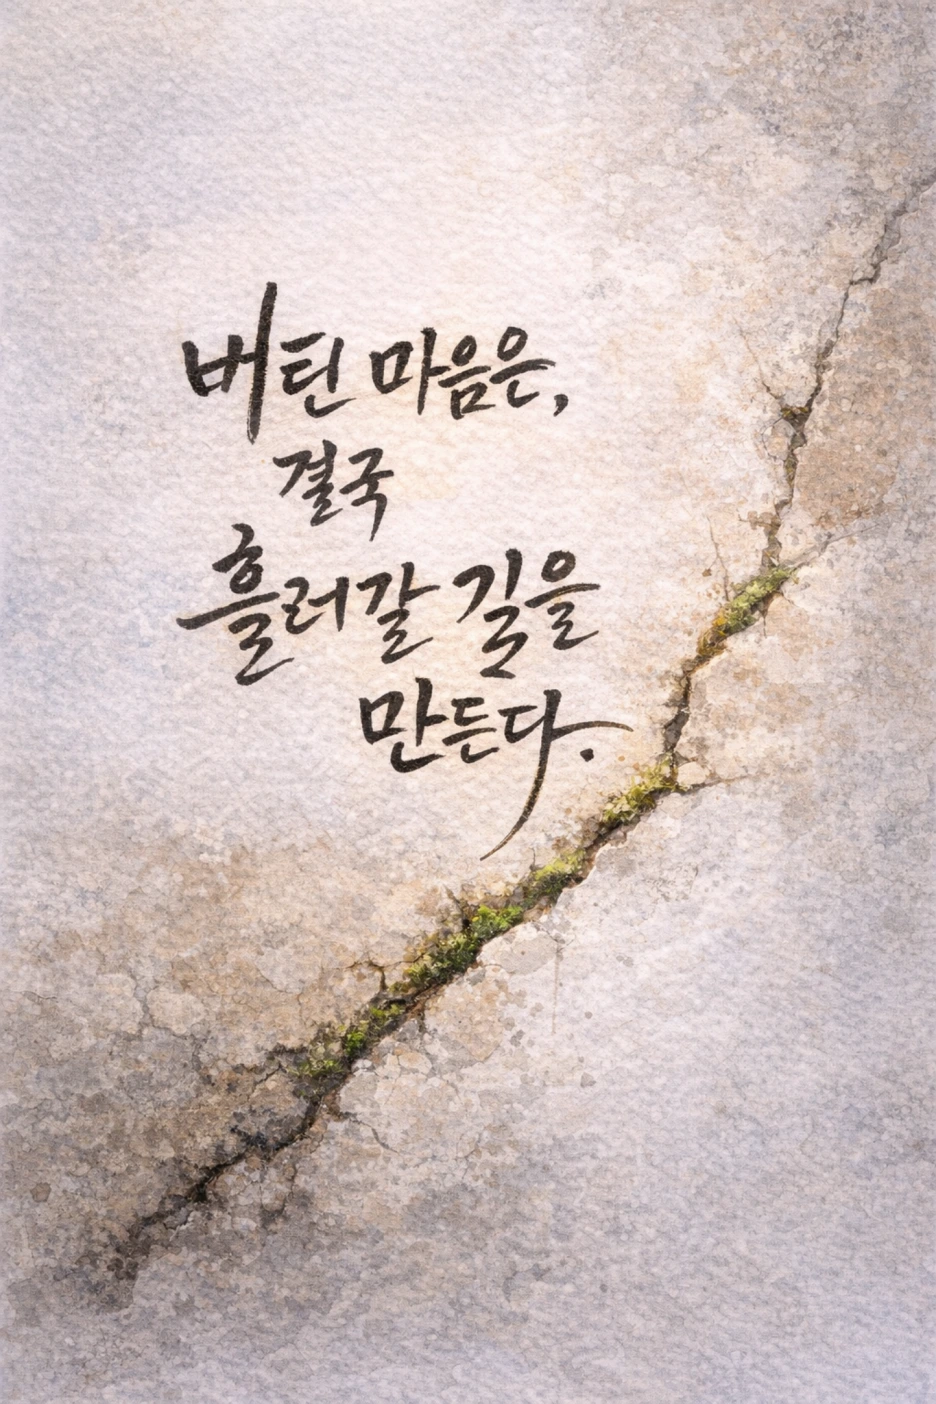 버틴 마음은,
결국
흘러갈 길을
만든다.